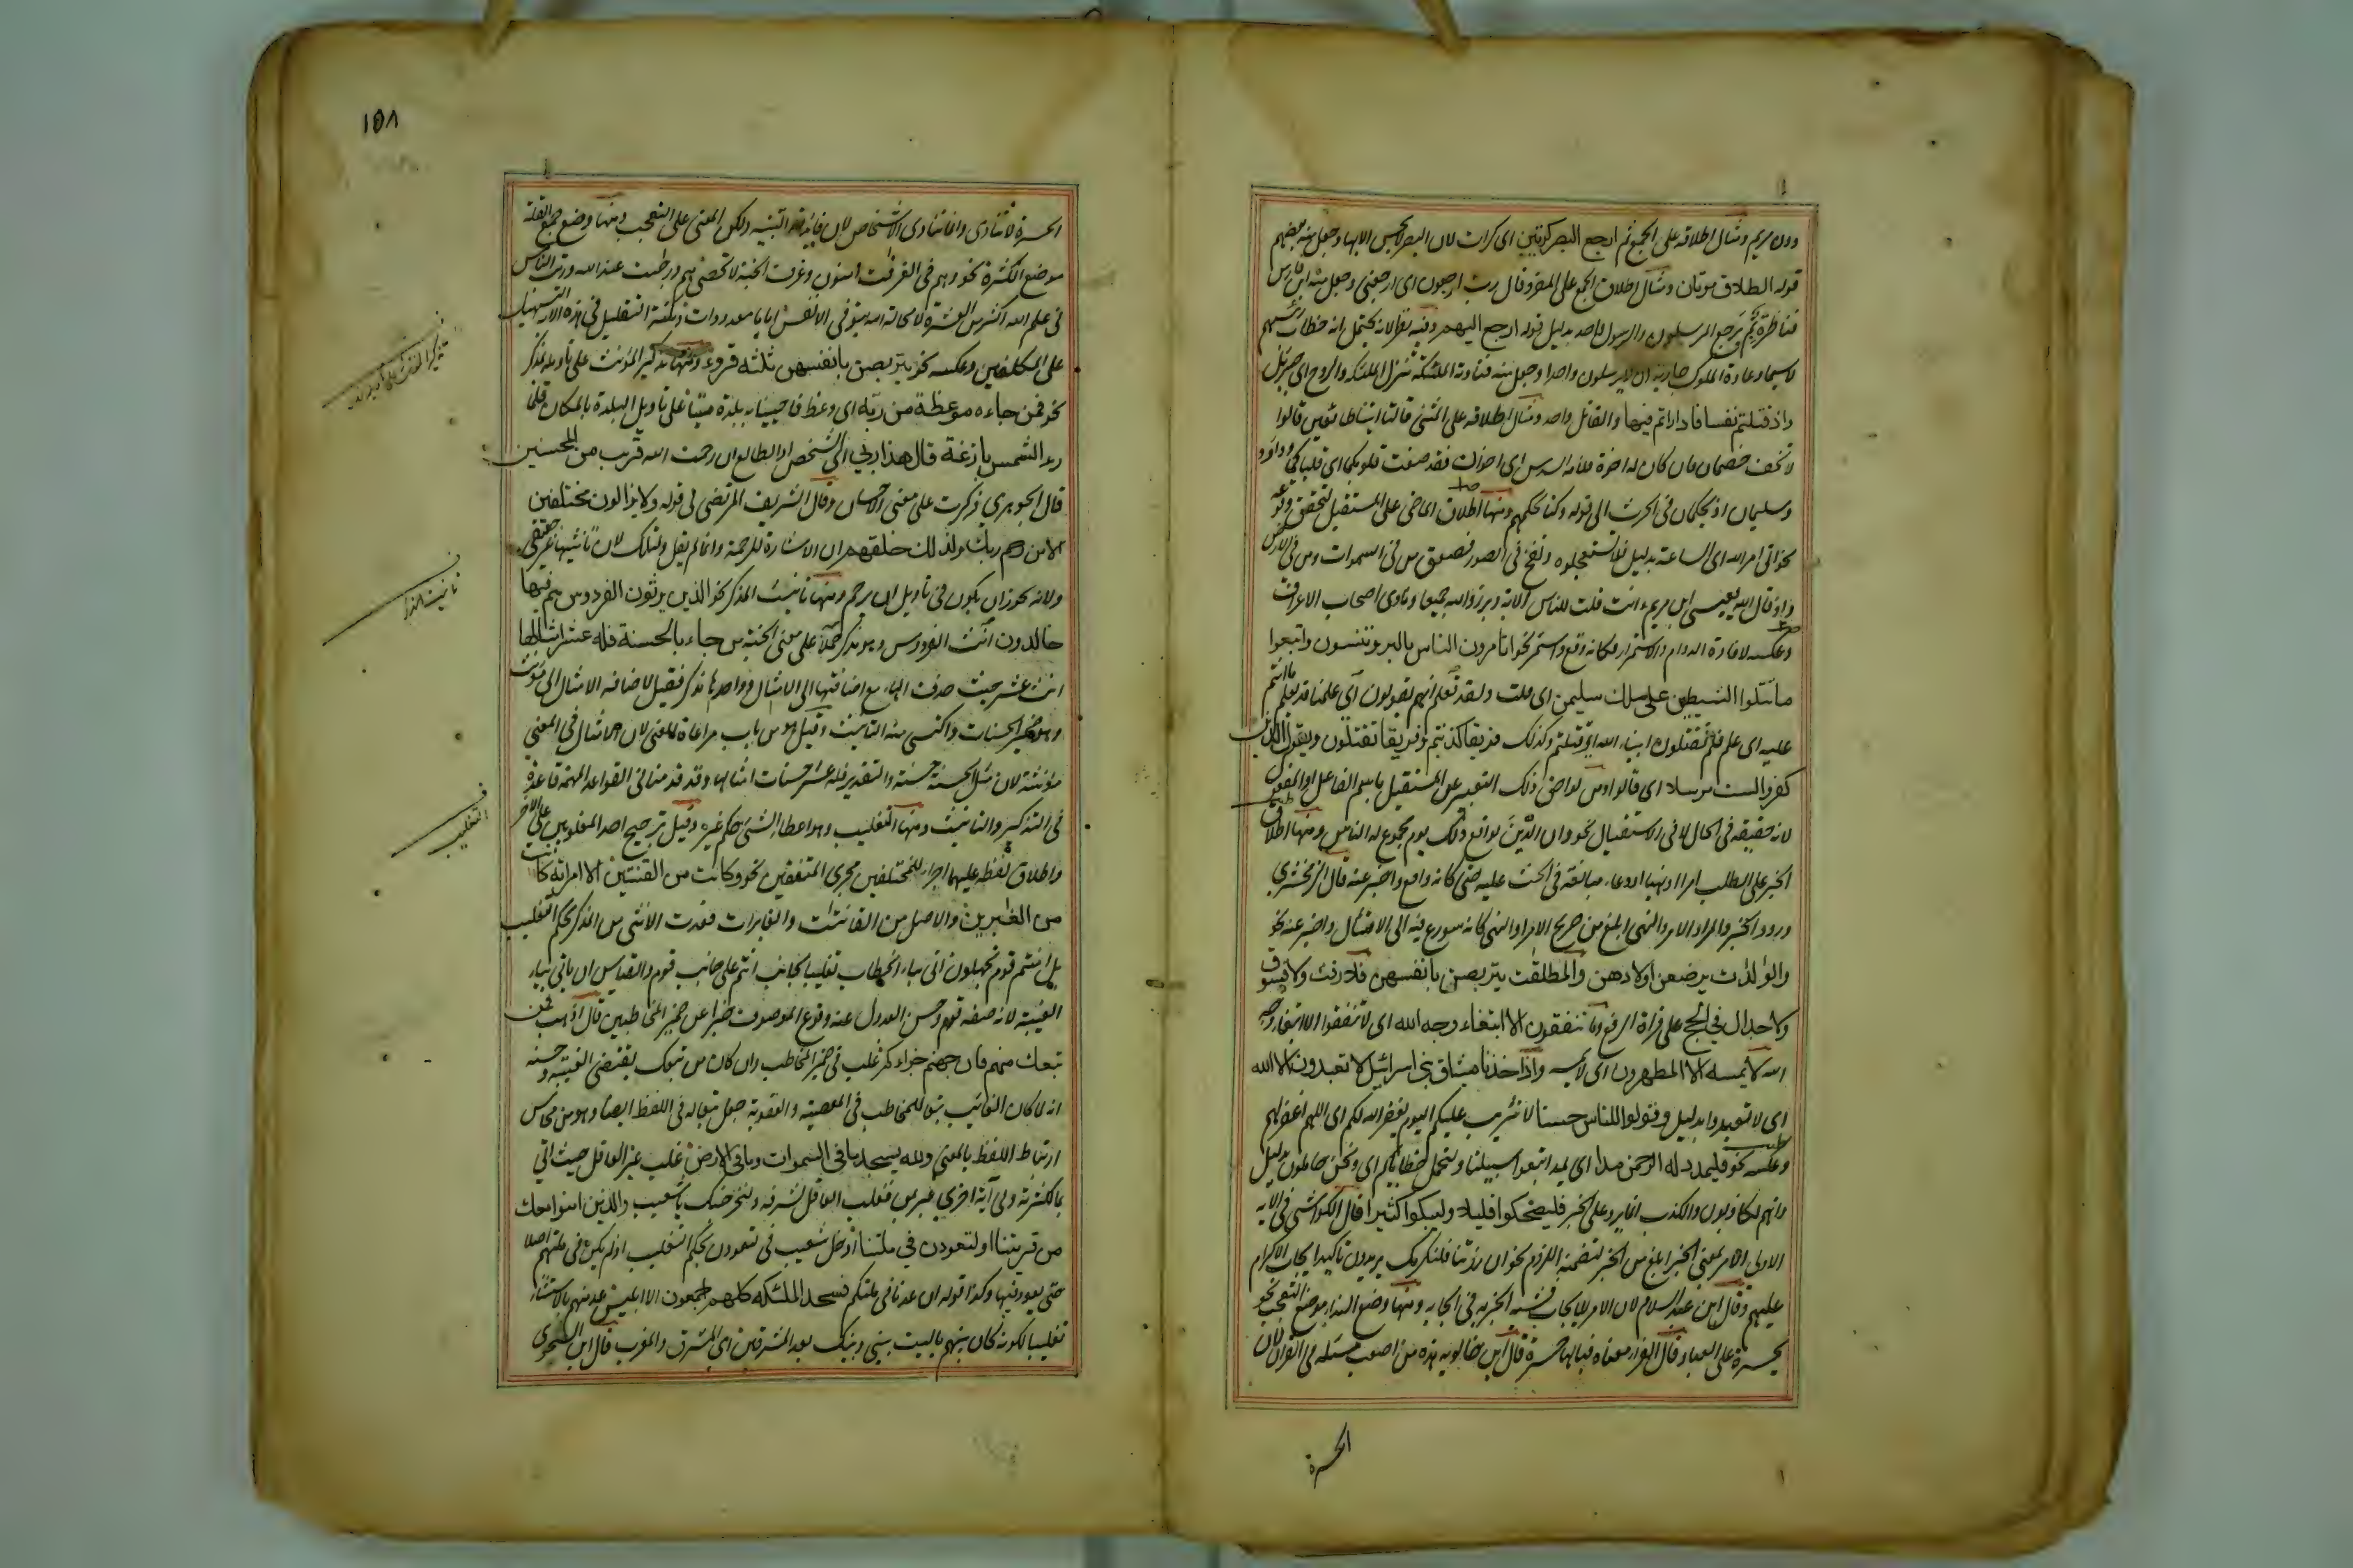 دون مريم ومثال اطلاقه على الجمع ثم ارجع البصر كرتين اى كرات لان البصر لا يحسر الا بها وجعل منه بعضهم
قوله الطلاق مرتان ومثال اطلاق الجمع على المفرد قال رب ارجعون اى ارجعنى وجعل منه ابن فارس
فناظرة بم يرجع المرسلون والرسول واحد بدليل قوله ارجع اليهم وفيه نظر لانه يحتمل انه خطاب رئيسهم
لاسيما وعادة الملوك جارية ان لا يرسلون واحدا وجعل منه فنادته الملئكة تنزل الملئكة والروح اى جبريل
واذ قتلتم نفسا فاداراتم فيها والقاتل واحد ومثال اطلاقه على المثنى قالتا اتينا طائعين قالوا
لا تخف خصمان فان كان له اخوة فلامه السدس اى اخوان فقد صغت قلوبكما اى قلباكما وداود
وسليمان اذ يحكمان فى الحرث الى قوله وكنا لحكمهم ومنها اطلاق الماضى على المستقبل لتحقق وقوعه
نحو اتى امر الله اى الساعة بدليل فلا تستعجلوه ونفخ فى الصور فصعق من فى السموات ومن فى الارض
واذ قال الله يعيسى ابن مريم ءانت قلت للناس الاية وبرزوا لله جميعا ونادى اصحاب الاعراف
وعكسه لافادة الدوام والاستمرار فكانه وقع واستمر نحو اتامرون الناس بالبر وتنسون واتبعوا
ما تتلوا الشيطين على ملك سليمن اى تلت ولقد نعلم انهم يقولون اى علمنا قد يعلم ما انتم
عليه اى علم فلم تقتلون انبياء الله اى قتلتم وكذلك فريقا كذبتم وفريقا تقتلون ويقول الذين
كفروا لست مرسلا اى قالوا ومن لواحق ذلك التعبير عن المستقبل باسم الفاعل او المفعول
لانه حقيقة فى الحال لا فى الاستقبال نحو وان الدين لواقع ذلك يوم مجموع له الناس ومنها اطلاق
الخبر على الطلب امرا او نهيا او دعاء مبالغة فى الحث عليه حتى كانه وقع واخبر عنه قال الزمخشرى
ورود الخبر والمراد الامر والنهى ابلغ من صريح الامر او النهى كانه سورع فيه الى الامتثال واخبر عنه نحو
والوالدات يرضعن اولادهن والمطلقت يتربصن بانفسهن فلا رفث ولا فسوق
ولا جدال فى الحج على قراءة الرفع وما تنفقون الا ابتغاء وجه الله اى لا تنفقوا الا ابتغاء وجه
الله لا يمسه الا المطهرون اى لا يمسه واذ اخذنا ميثاق بنى اسرائيل لا تعبدون الا الله
اى لا تعبدوا بدليل وقولوا للناس حسنا لا تثريب عليكم اليوم يغفر الله لكم اى اللهم اغفر لهم
وعكسه نحو فليمدد له الرحمن مدا اى يمد اتبعوا سبيلنا ولنحمل خطاياكم اى ونحن حاملون بدليل
وانهم لكاذبون والكذب انما يرد على الخبر فليضحكوا قليلا وليبكوا كثيرا قال الكواشى فى الاية
الاولى الامر بمعنى الخبر ابلغ من الخبر لتضمنه اللزوم نحو ان زرتنا فلنكرمك يريدون تاكيد ايجاب الاكرام
عليهم وقال ابن عبد السلام لان الامر للايجاب فشبه الخبر به فى ايجابه ومنها وضع النداء موضع التعجب نحو
يحسرة على العباد قال الفراء معناه فيا لها حسرة قال ابن خالويه هذه من اصعب مسئلة فى القران لان
الحسرة
١٥٨
الحسرة لا تنادى وانما تنادى الاشخاص لان فائدته التنبيه ولكن المعنى على التعجب ومنها وضع جمع القلة
موضع الكثرة نحو وهم فى الغرفت امنون وغرف الجنة لا تحصى هم درجت عند الله ورتب الناس
فى علم الله اكثر من العشرة لا محالة الله يتوفى الانفس اياما معدودات ونكتة التقليل فى هذه الاية التسهيل
على المكلفين وعكسه نحو يتربصن بانفسهن ثلثة قروء ومنها تذكير المؤنث على تاويله بمذكر
نحو فمن جاءه موعظة من ربه اى وعظ فاحيينا به بلدة ميتا على تاويل البلدة بالمكان فلما
رءا الشمس بازغة قال هذا ربى اى الشخص او الطالع ان رحمت الله قريب من المحسنين
قال الجوهرى ذكرت على معنى الاحسان وقال الشريف المرتضى فى قوله ولا يزالون مختلفين
الا من رحم ربك ولذلك خلقهم ان الاشارة للرحمة وانما لم يقل ولتلك لان تانيثها غير حقيقى
ولانه يجوز ان يكون فى تاويل ان يرحم ومنها تانيث المذكر نحو الذين يرثون الفردوس هم فيها
خالدون انث الفردوس وهو مذكر حملا على معنى الجنة من جاء بالحسنة فله عشر امثالها
انث عشر حيث حذف الهاء مع اضافتها الى الامثال وواحدها مذكر فقيل لاضافة الامثال الى مؤنث
وهو ضمير الحسنات فاكتسى منه التانيث وقيل هو من باب مراعاة المعنى لان الامثال فى المعنى
مؤنثة لان مثل الحسنة حسنة والتقدير فله عشر حسنات امثالها وقد قدمنا فى القواعد المهمة قاعدة
فى التذكير والتانيث ومنها التغليب وهو اعطاء الشئ حكم غيره وقيل ترجيح احد المغلوبين على الاخر
واطلاق لفظه عليهما اجراء للمختلفين مجرى المتفقين نحو وكانت من القنتين الا امراته كانت
من الغبرين والاصل من القانتات والغابرات فعدت الانثى من المذكر بحكم التغليب
بل انتم قوم تجهلون اتى بتاء الخطاب تغليبا لجانب انتم على جانب قوم والقياس ان ياتى بياء
الغيبة لانه صفة لقوم وحسن العدول عنه وقوع الموصوف خبرا عن ضمير المخاطبين قال اذهب فمن
تبعك منهم فان جهنم جزاءكم غلب فى ضمير المخاطب وان كان من تبعك يقتضى الغيبة وحسنه
انه لما كان الغائب تبعا للمخاطب فى المعصية والعقوبة جعل تبعا له فى اللفظ ايضا وهو من محاسن
ارتباط اللفظ بالمعنى ولله يسجد ما فى السموات وما فى الارض غلب غير العاقل حيث اتى
بما لكثرته وفى آية اخرى عبر بمن فغلب العاقل لشرفه ولنخرجنك ياشعيب والذين امنوا معك
من قريتنا او لتعودن فى ملتنا ادخل شعيب فى لتعودن بحكم التغليب اذ لم يكن فى ملتهم اصلا
حتى يعود فيها وكذا قوله ان عدنا فى ملتكم فسجد الملئكة كلهم اجمعون الا ابليس عد منهم بالاستثناء
تغليبا لكونه كان بينهم ياليت بينى وبينك بعد المشرقين اى المشرق والمغرب قال ابن الشجرى
تانيث المذكر
التغليب